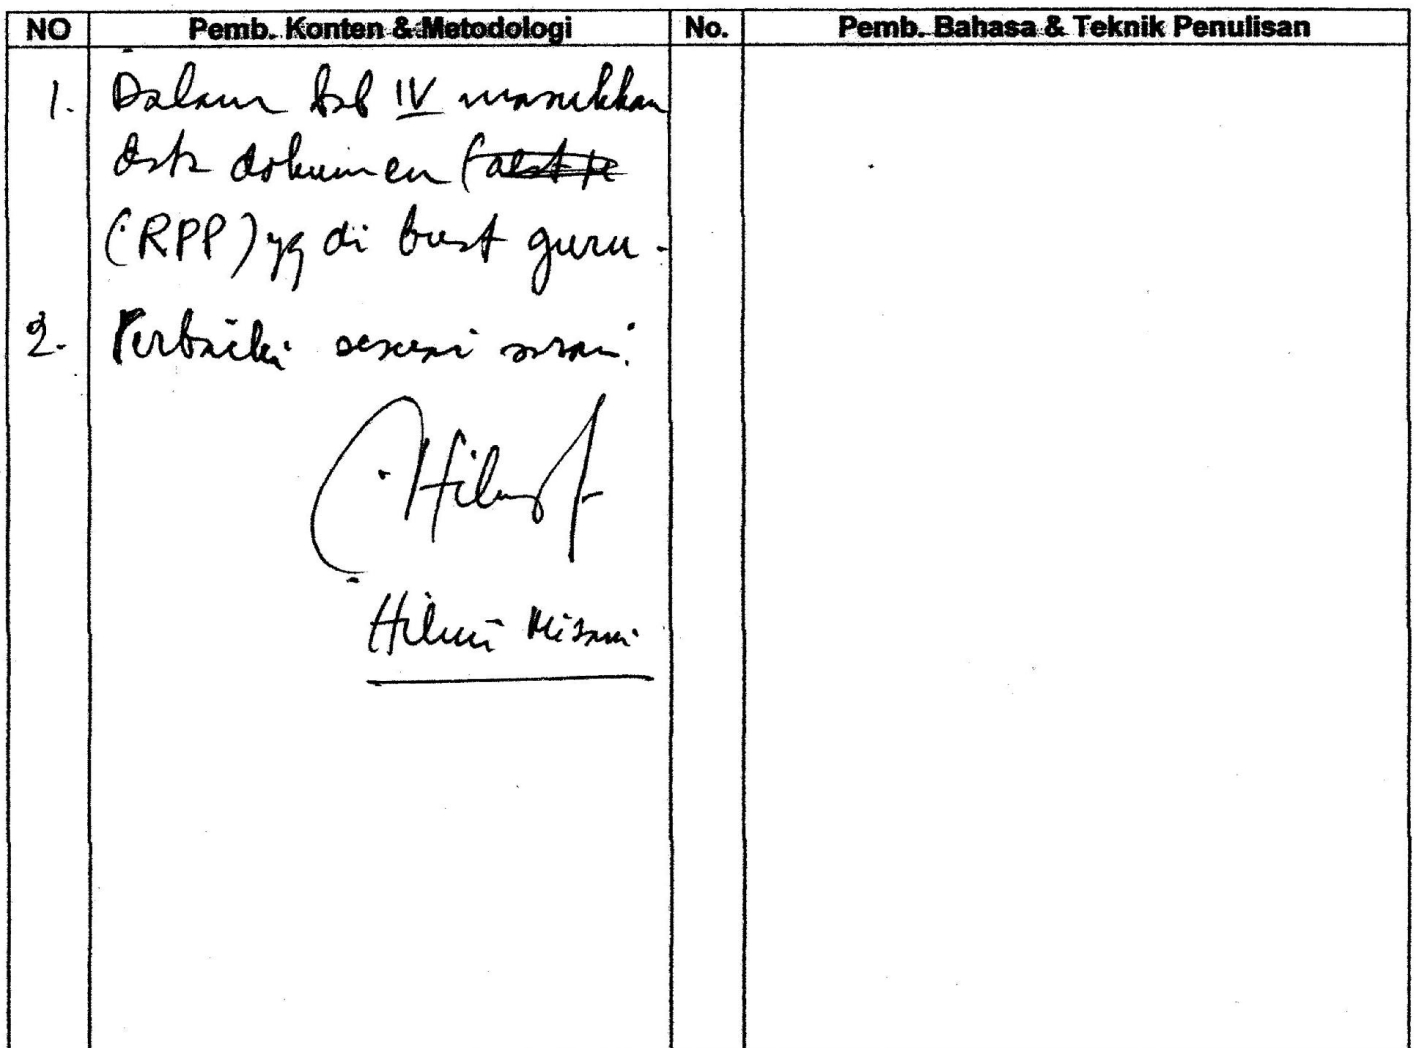 NO Pemb. Konten & Metodologi No. Pemb. Bahasa & Teknik Penulisan
1. Dalam bab IV masukkan
data dokumen
(RPP) yg di buat guru.
2. Perbaiki sesuai saran.
Hilmi Mizani